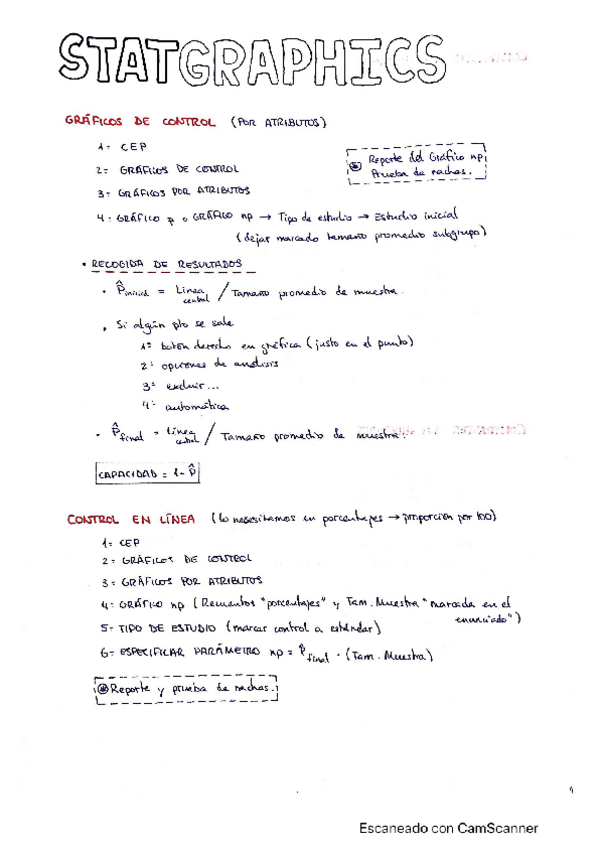 STATGRAPHICS
GRÁFICOS DE CONTROL (POR ATRIBUTOS)
1= CEP
2= GRÁFICOS DE CONTROL
3= GRÁFICOS POR ATRIBUTOS
4= GRÁFICO p o GRÁFICO np → Tipo de estudio → Estudio inicial
(dejar marcado tamaño promedio subgrupo)
Reporte del Gráfico np,
Prueba de rachas.
• RECOGIDA DE RESULTADOS
• P̂inicial = Línea central / Tamaño promedio de muestra.
• Si algún pto se sale
1= botón derecho en gráfica (justo en el punto)
2= opciones de análisis
3= excluir...
4= automática
• P̂final = Línea central / Tamaño promedio de muestra
CAPACIDAD = 1 - P̂
CONTROL EN LÍNEA (lo necesitamos en porcentajes → proporción por 100)
1= CEP
2= GRÁFICOS DE CONTROL
3= GRÁFICOS POR ATRIBUTOS
4= GRÁFICO np (Rementos "porcentajes" y Tam. Muestra "marcada en el enunciado")
5= TIPO DE ESTUDIO (marcar control a estándar)
6= ESPECIFICAR PARÁMETRO np = P̂final · (Tam. Muestra)
Reporte y prueba de rachas.
1
Escaneado con CamScanner